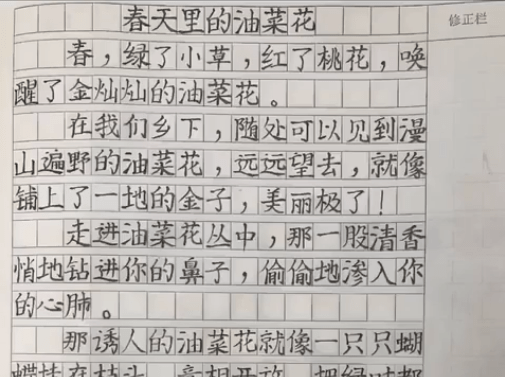 春天里的油菜花
修正栏
春，绿了小草，红了桃花，唤
醒了金灿灿的油菜花。
在我们乡下，随处可以见到漫
山遍野的油菜花，远远望去，就像
铺上了一地的金子，美丽极了！
走进油菜花丛中，那一股清香
悄地钻进你的鼻子，偷偷地渗入你
的心肺。
那诱人的油菜花就像一只只蝴
蝶挂在枝头，竞相开放，把绿叶都